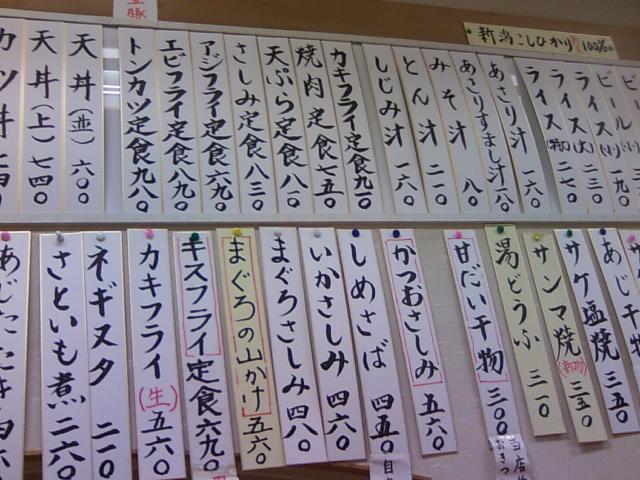 新潟こしひかり 100%
ビール
ライス(小)一九〇
ライス(大)二三〇
ライス(特)二七〇
あさり汁 一六〇
あさりすまし汁 一八〇
みそ汁 八〇
とん汁 二一〇
しじみ汁 一六〇
カキフライ定食 九二〇
焼肉定食 七五〇
天ぷら定食 八一〇
さしみ定食 八三〇
アジフライ定食 六九〇
エビフライ定食 八九〇
トンカツ定食 九八〇
天丼(並)六〇〇
天丼(上)七四〇
カツ丼
あじ干物 三五〇
サケ塩焼 三五〇
サンマ焼(新物)三五〇
湯どうふ 三一〇
甘だい干物 三〇〇
当店
かつおさしみ 五六〇
しめさば 四五〇
自
いかさしみ 四六〇
まぐろさしみ 四八〇
まぐろの山かけ 五六〇
キスフライ定食 六九〇
カキフライ(生)五六〇
ネギヌタ 二一〇
さといも煮 二六〇
あじたたき 四六